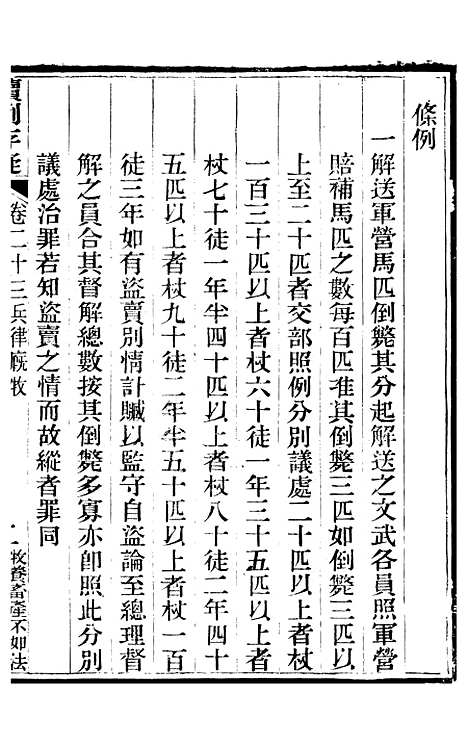 條例
一解送軍營馬匹倒斃其分起解送之文武各員照軍營
賠補馬匹之數每百匹准其倒斃三匹如倒斃三匹以
上至二十匹者交部照例分別議處二十匹以上者杖
一百三十匹以上者杖六十徒一年三十五匹以上者
杖七十徒一年半四十匹以上者杖八十徒二年四十
五匹以上者杖九十徒二年半五十匹以上者杖一百
徒三年如有盜賣別情計贓以監守自盜論至總理督
解之員合其督解總數按其倒斃多寡亦卽照此分別
議處治罪若知盜賣之情而故縱者罪同
讀例存疑 卷二十三兵律廐牧 一 牧養畜產不如法